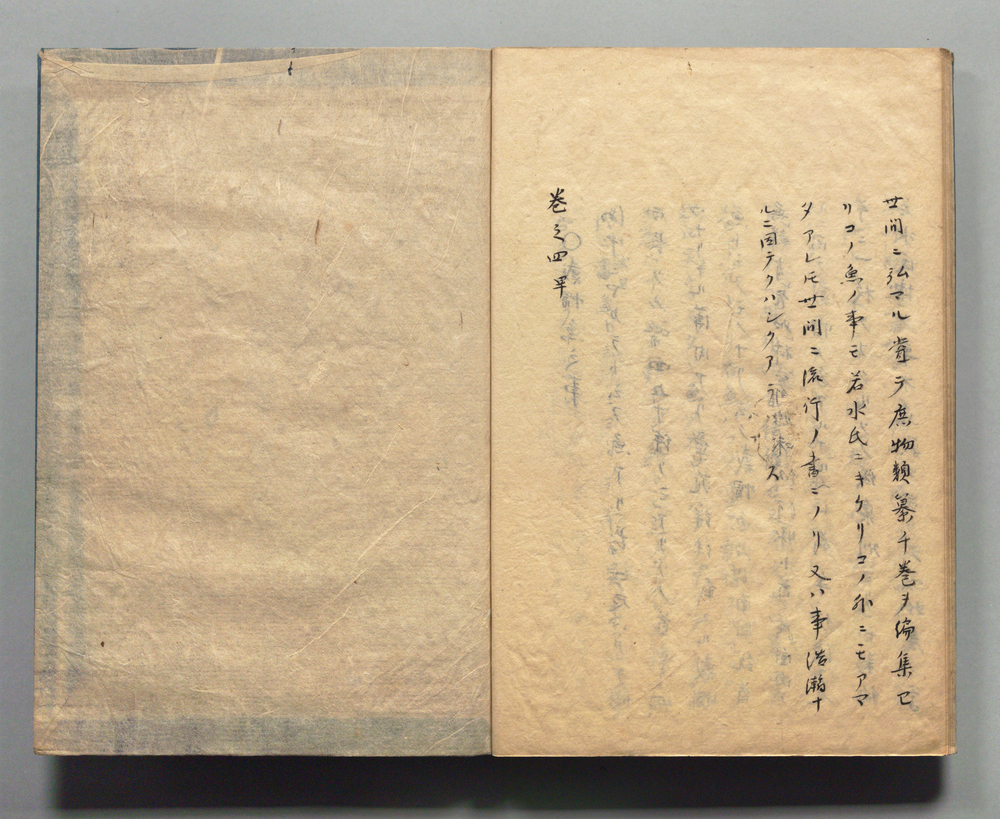 世間ニ弘マル嘗テ庶物類纂千巻ヲ編集已
リコノ魚ノ事モ若水氏ニキケリコノ外ニモアマ
タアレ𪜈世間ニ流行ノ書ニノリ又ハ事浩瀚ナ
ルニ因テクハシクアラハサス
巻之四畢